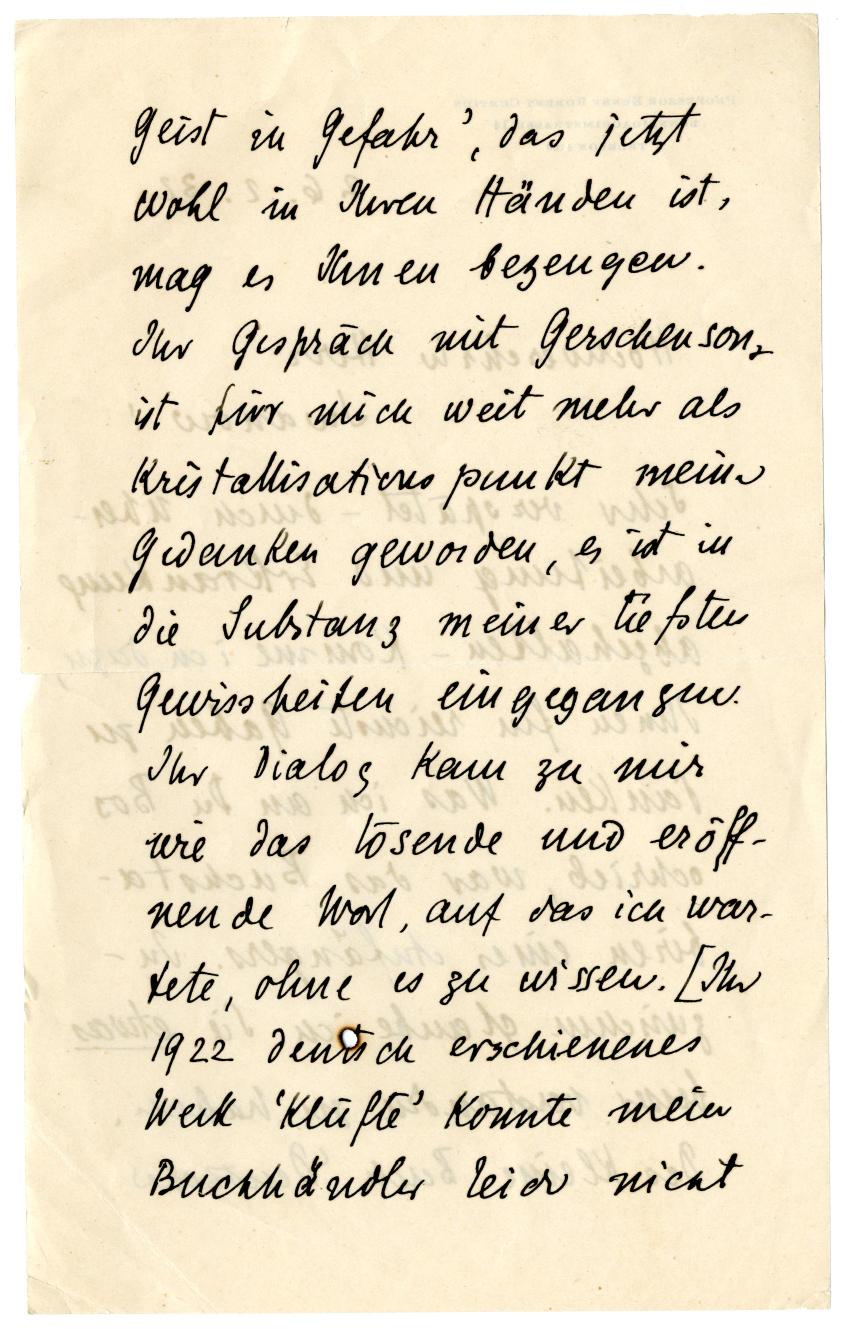 Geist in Gefahr', das jetzt
wohl in Ihren Händen ist,
mag es Ihnen bezeugen.
Ihr Gespräch mit Gerschenson
ist für mich weit mehr als
Kristallisationspunkt meiner
Gedanken geworden, es ist in
die Substanz meiner tiefsten
Gewissheiten eingegangen.
Ihr Dialog kam zu mir
wie das lösende und eröff-
nende Wort, auf das ich war-
tete, ohne es zu wissen. [Ihr
1922 deutsch erschienenes
Werk 'Klüfte' konnte mein
Buchhändler leider nicht